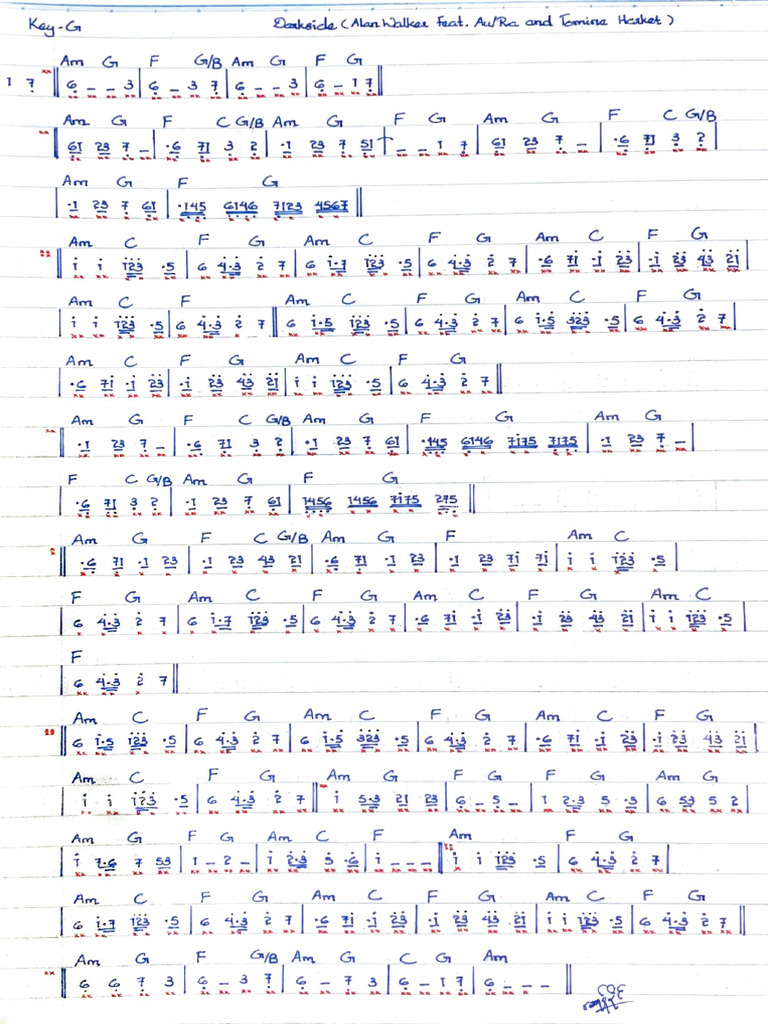 Key-G Darkside (Alan Walker feat. Au/Ra and Tomine Harket)
Am G F G/B Am G F G
1 7 || 6 _ _ 3 | 6 _ 3 7 | 6 _ _ 3 | 6 _ 1 7 ||
Am G F C G/B Am G F G Am G F C G/B
|| 61 23 7 _ | ·6 71 3 2 | ·1 23 7 51 | _ _ 1 7 | 61 23 7 _ | ·6 71 3 2 |
Am G F G
| ·1 23 7 61 | ·145 6146 7123 4567 ||
Am C F G Am C F G Am C F G
|| i i i23 ·5 | 6 4·3 2 7 | 6 i·7 i23 ·5 | 6 4·3 2 7 | ·6 7i ·i 23 | ·i 23 43 2i |
Am C F Am C F G Am C F G
| i i i23 ·5 | 6 4·3 2 7 || 6 i·5 i23 ·5 | 6 4·3 2 7 | 6 i·5 323 ·5 | 6 4·3 2 7 |
Am C F G Am C F G
| ·6 7i ·i 23 | ·i 23 43 2i | i i i23 ·5 | 6 4·3 2 7 ||
Am G F C G/B Am G F G Am G
|| ·1 23 7 _ | ·6 71 3 2 | ·1 23 7 61 | ·145 6146 7i75 7175 | ·1 23 7 _ |
F C G/B Am G F G
| ·6 71 3 2 | ·1 23 7 61 | 1456 1456 7i75 275 ||
Am G F C G/B Am G F Am C
|| ·6 71 ·1 23 | ·1 23 43 21 | ·6 71 ·1 23 | ·1 23 7i 7i | i i i23 ·5 |
F G Am C F G Am C F G Am C
| 6 4·3 2 7 | 6 i·7 i23 ·5 | 6 4·3 2 7 | ·6 7i ·i 23 | ·i 23 43 2i | i i i23 ·5 |
F
| 6 4·3 2 7 ||
Am C F G Am C F G Am C F G
|| 6 i·5 i23 ·5 | 6 4·3 2 7 | 6 i·5 323 ·5 | 6 4·3 2 7 | ·6 7i ·i 23 | ·i 23 43 2i |
Am C F G Am G F G F G Am G
| i i i23 ·5 | 6 4·3 2 7 || i 5·3 21 23 | 6 _ 5 _ | 1 2·3 5 ·3 | 6 53 5 2 |
Am G F G Am C F Am F G
| i 7·6 7 53 | 1 _ 2 _ | i 2·3 5 ·6 | i _ _ _ || i i i23 ·5 | 6 4·3 2 7 |
Am C F G Am C F G Am C F G
| 6 i·7 i23 ·5 | 6 4·3 2 7 | ·6 7i ·i 23 | ·i 23 43 2i | i i i23 ·5 | 6 4·3 2 7 ||
Am G F G/B Am G C G Am
|| 6 6 7 3 | 6 _ 3 7 | 6 _ 7 3 | 6 _ 1 7 | 6 _ _ _ ||